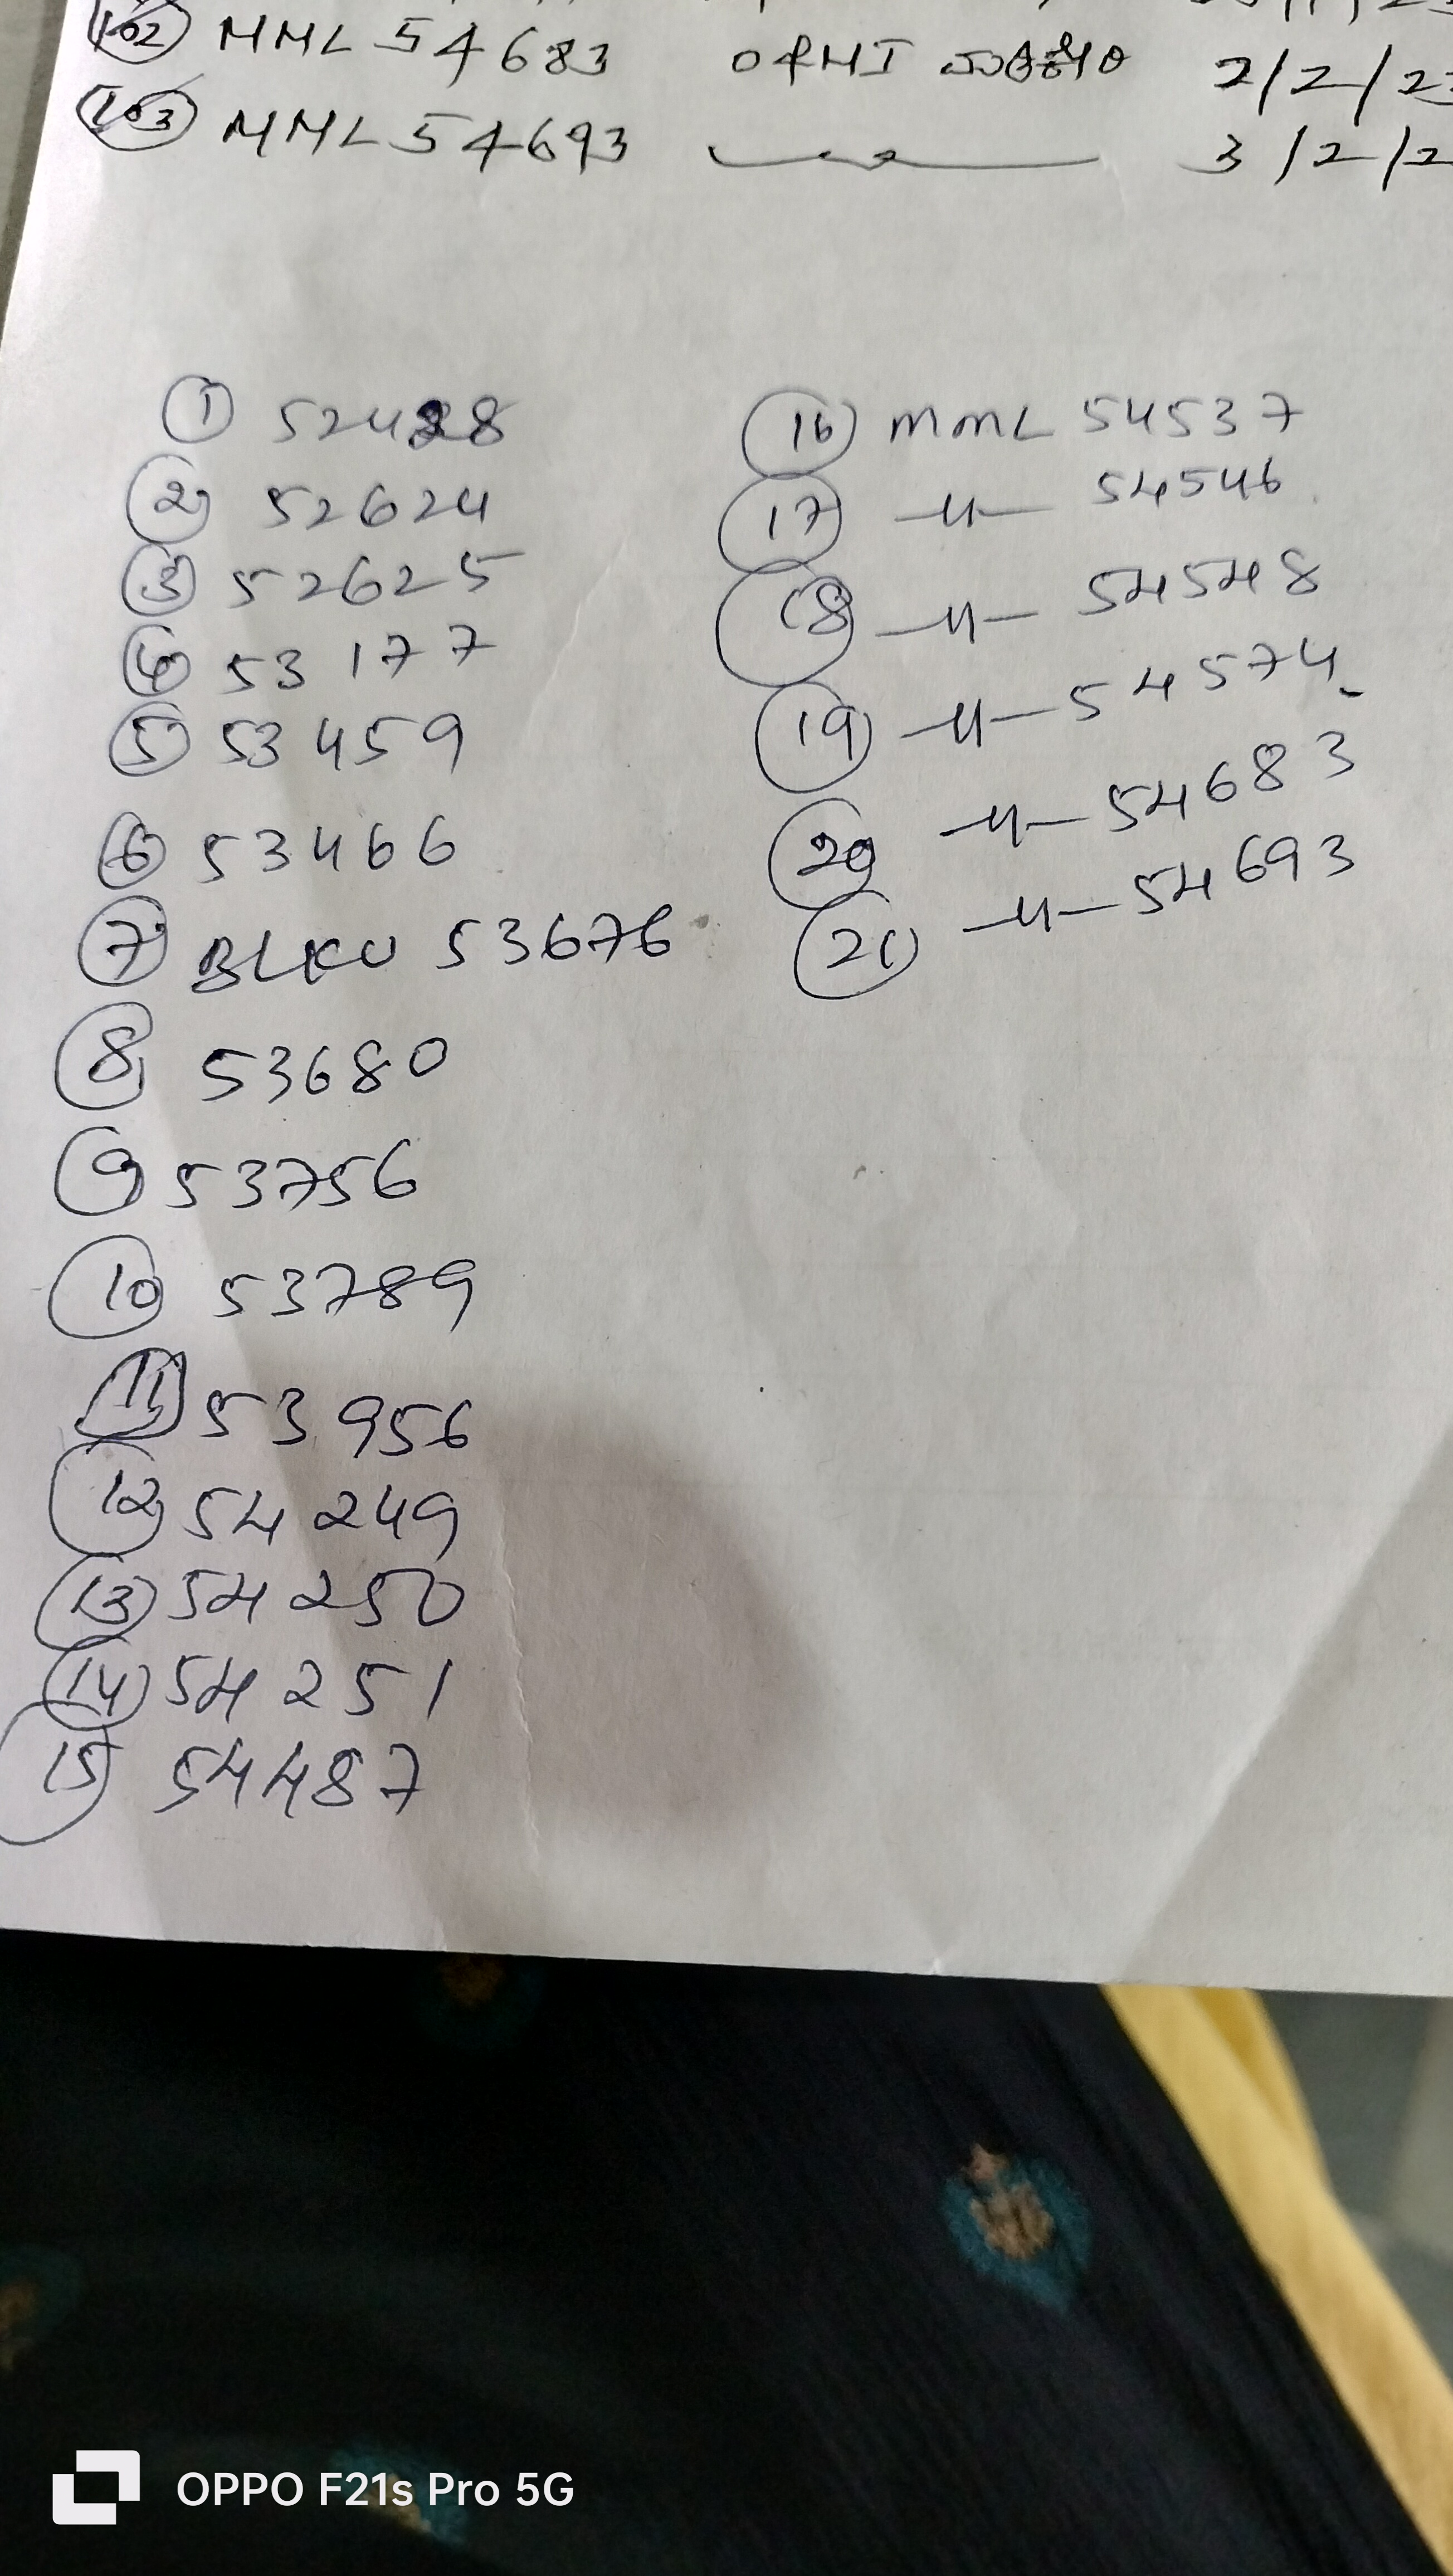 102 MML 54683 2/2/23
103 MML 54693 3/2/2
1 52428
2 52624
3 52625
4 53177
5 53459
6 53466
7 BLKU 53676
8 53680
9 53756
10 53789
11 53956
12 54249
13 54250
14 54251
15 54487
16 MML 54537
17 —〃— 54546
18 —〃— 54548
19 —〃— 54574
20 —〃— 54683
21 —〃— 54693
OPPO F21s Pro 5G